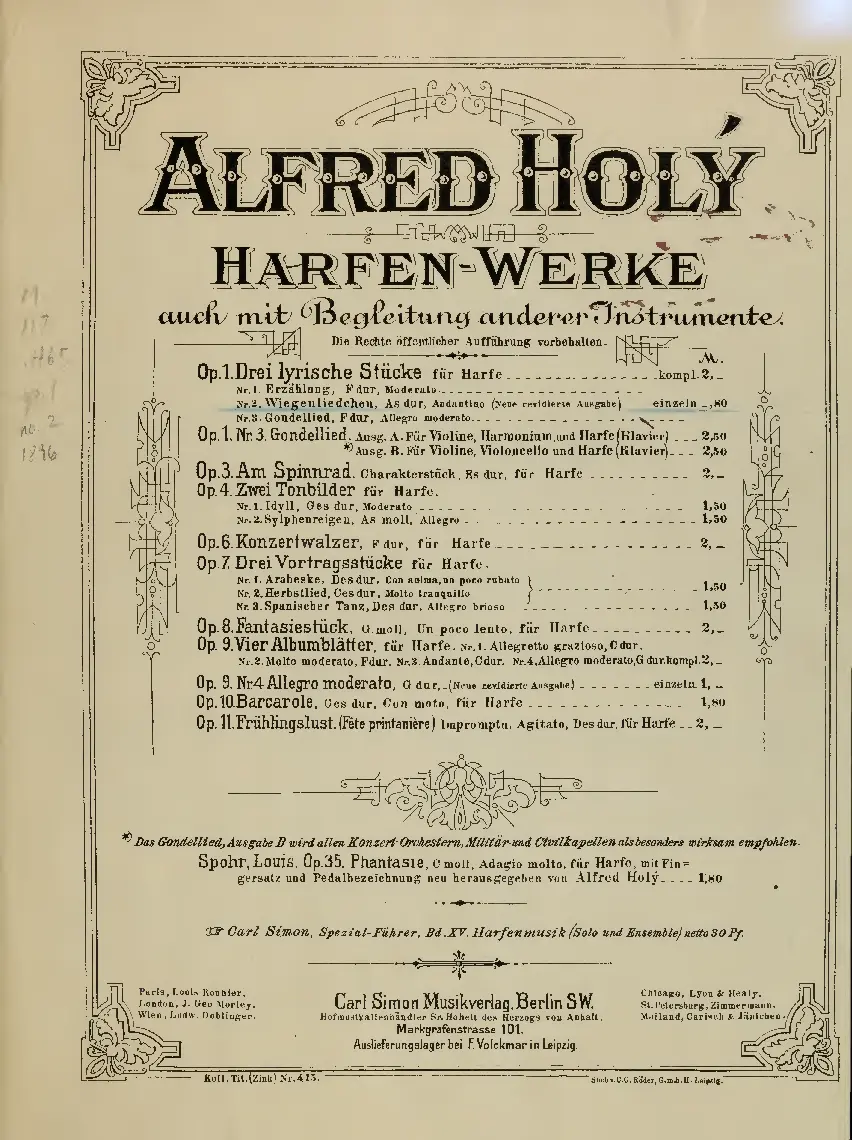 ALFRED HOLÝ
HARFEN-WERKE
auch mit Begleitung anderer Instrumente.
Die Rechte öffentlicher Aufführung vorbehalten.
M.
Op.1. Drei lyrische Stücke für Harfe kompl. 2,_
Nr.1. Erzählung, F dur, Moderato
Nr.2. Wiegenliedchen, As dur, Andantino (Neue revidierte Ausgabe) einzeln _,80
Nr.3. Gondellied, F dur, Allegro moderato
Op.1. Nr.3. Gondellied. Ausg. A. Für Violine, Harmonium, und Harfe (Klavier) 2,50
*) Ausg. B. Für Violine, Violoncello und Harfe (Klavier) 2,50
Op.3. Am Spinnrad. Charakterstück, Es dur, für Harfe 2,_
Op.4. Zwei Tonbilder für Harfe.
Nr.1. Idyll, Ges dur, Moderato 1,50
Nr.2. Sylphenreigen, As moll, Allegro 1,50
Op.6. Konzertwalzer, F dur, für Harfe 2,_
Op.7. Drei Vortragsstücke für Harfe.
Nr.1. Arabeske, Des dur, Con anima, un poco rubato
Nr.2. Herbstlied, Ces dur, Molto tranquillo 1,50
Nr.3. Spanischer Tanz, Des dur, Allegro brioso 1,50
Op.8. Fantasiestück, G moll, Un poco lento, für Harfe 2,_
Op. 9. Vier Albumblätter, für Harfe. Nr.1. Allegretto grazioso, C dur.
Nr.2. Molto moderato, F dur. Nr.3. Andante, C dur. Nr.4. Allegro moderato, G dur. kompl. 2,_
Op. 9. Nr4 Allegro moderato, G dur, (Neue revidierte Ausgabe) einzeln 1,_
Op.10. Barcarole, Ges dur, Con moto, für Harfe 1,80
Op.11. Frühlingslust. (Fête printanière) Impromptu, Agitato, Des dur, für Harfe 2,_
*) Das Gondellied, Ausgabe B wird allen Konzert-Orchestern, Militär-und Civilkapellen als besonders wirksam empfohlen.
Spohr, Louis, Op.35. Phantasie, C moll, Adagio molto, für Harfe, mit Fin=
gersatz und Pedalbezeichnung neu herausgegeben von Alfred Holý 1,80
☞ Carl Simon, Spezial-Führer, Bd. XV. Harfenmusik (Solo und Ensemble) netto 30 Pf.
Paris, Louis Rouhier.
London, J. Geo Morley.
Wien, Ludw. Doblinger.
Carl Simon Musikverlag, Berlin SW.
Hofmusikalienhändler Sr. Hoheit des Herzogs von Anhalt.
Markgrafenstrasse 101.
Auslieferungslager bei F. Volckmar in Leipzig.
Chicago, Lyon & Healy.
St. Petersburg, Zimmermann.
Mailand, Carisch & Jänichen.
Koll. Tit. (Zink) Nr. 413.
Stich v. C.G. Röder, G.m.b.H. Leipzig.
M
117
no. 2
1896